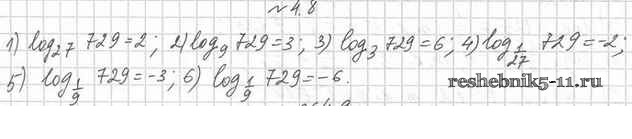 №4.8
1) log₂₇ 729=2; 2) log₉ 729=3; 3) log₃ 729=6; 4) log_{1/27} 729=-2;
5) log_{1/9} 729=-3; 6) log_{1/9} 729=-6.
reshebnik5-11.ru